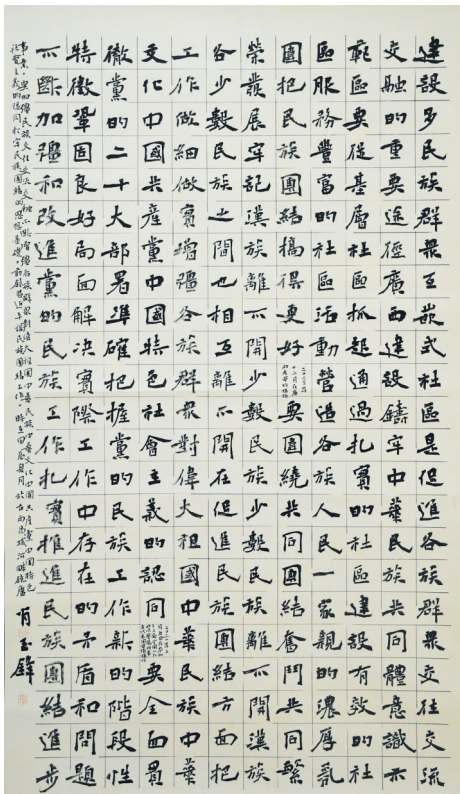 建設多民族群衆互嵌式社區是促進各族群衆交往交流
交融的重要途徑廣西建設鑄牢中華民族共同體意識示
範區要從基層社區抓起通過扎實的社區建設有效的社
區服務豐富的社區活動營造各族人民一家親的濃厚氛
圍把民族團結搞得更好要圍繞共同團結奮鬥共同繁
榮發展牢記漢族離不開少數民族少數民族離不開漢族
各少數民族之間也相互離不開在促進民族團結方面把
工作做細做實增強各族群衆對偉大祖國中華民族中華
文化中國共產黨中國特色社會主義的認同要全面貫
徹黨的二十大部署準確把握黨的民族工作新的階段性
特徵鞏固良好局面解決實際工作中存在的矛盾和問題
不斷加強和改進黨的民族工作扎實推進民族團結進步
事業
社會主義的認同